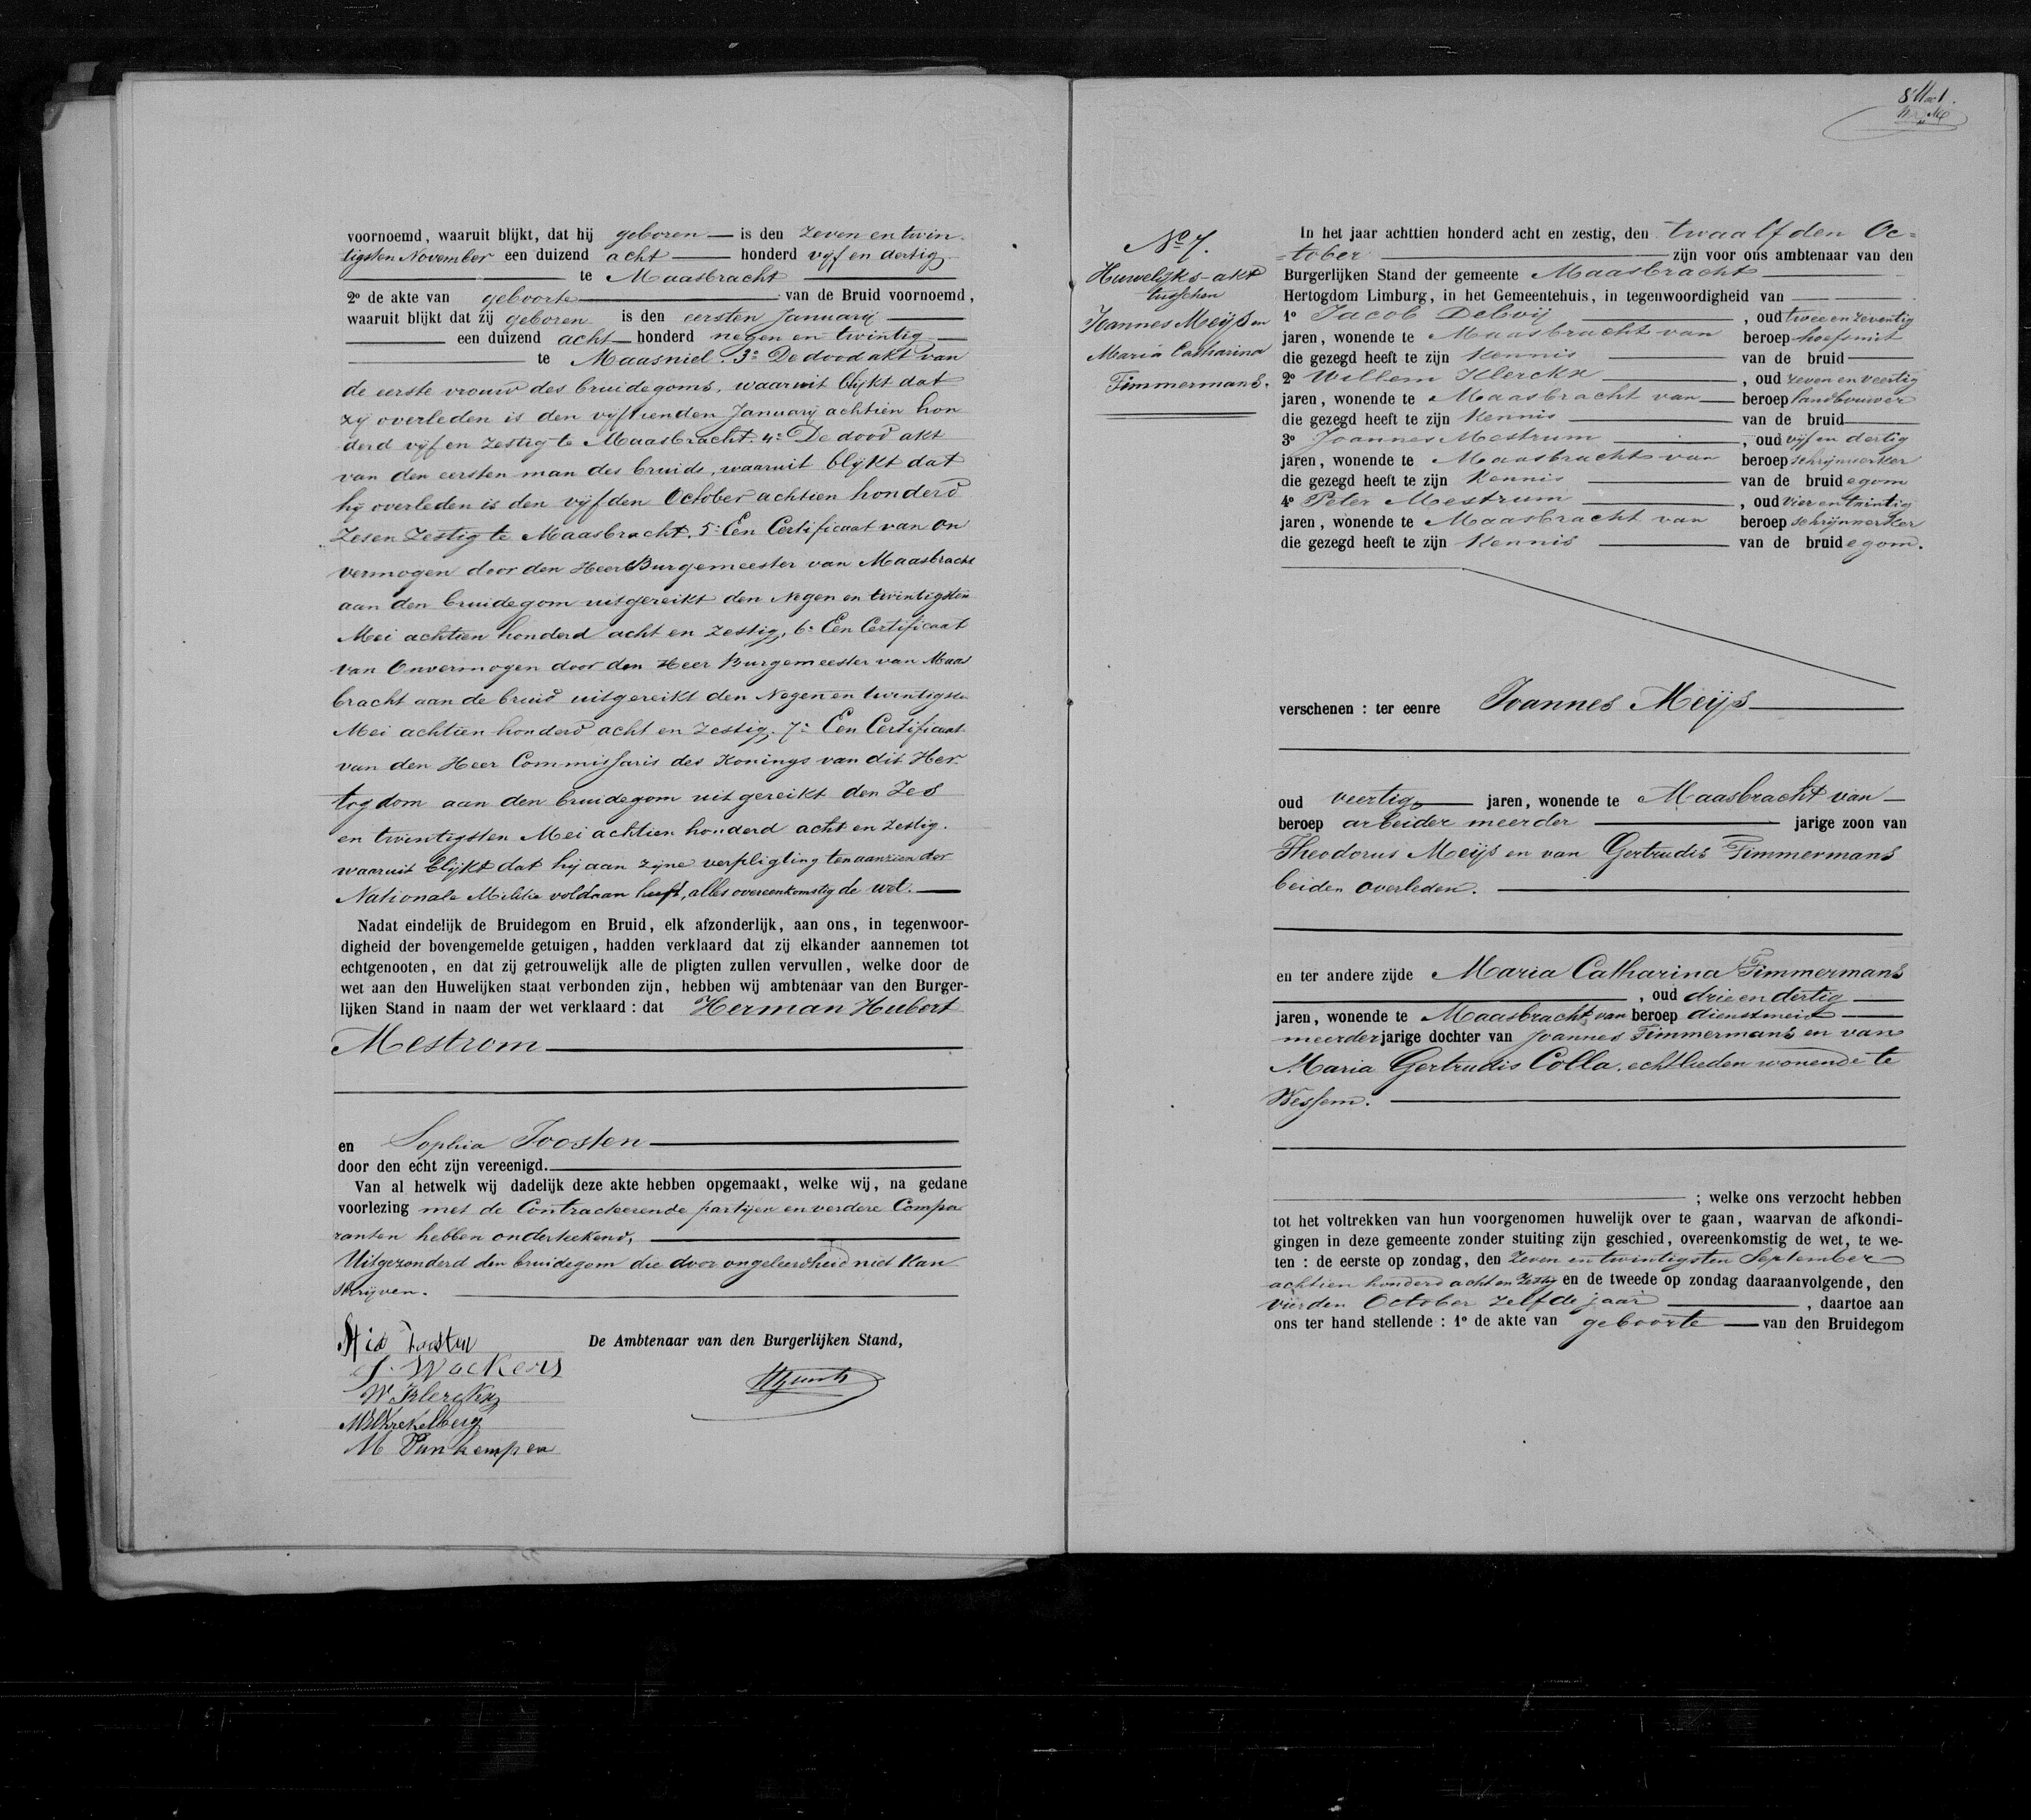 voornoemd, waaruit blijkt, dat hij geboren is den zeven en twin
tigsten November een duizend acht honderd vyf en dertig
te Maasbracht
2o de akte van geboorte van de Bruid voornoemd,
waaruit blijkt dat zij geboren is den eersten January
een duizend acht honderd negen en twintig
te Maasniel. 3o De dood akt van
de eerste vrouw des bruidegoms, waaruit blijkt dat
zy overleden is den vyftienden January achtien hon
derd vyf en zestig te Maasbracht. 4o De dood akt
van den eersten man des bruids, waaruit blykt dat
hy overleden is den vyfden October achtien honderd
Zes en Zestig te Maasbracht. 5o Een Certificaat van on
vermogen door den Heer Burgemeester van Maasbracht
aan den bruidegom uitgereikt den Negen en twintigsten
Mei achtien honderd acht en zestig, 6o Een Certificaat
van Onvermogen door den Heer Burgemeester van Maas
bracht aan de bruid uitgereikt den Negen en twintigste
Mei achtien honderd acht en zestig. 7o Een Certificaat
van den Heer Commissaris des Konings van dit Her
togdom aan den bruidegom uitgereikt den Zes
en twintigsten Mei achtien honderd acht en zestig.
waaruit blijkt dat hij aan zijne verpligting ten aanzien der
Nationale Militie voldaan heeft, alles overeenkomstig de wet.
Nadat eindelijk de Bruidegom en Bruid, elk afzonderlijk, aan ons, in tegenwoor-
digheid der bovengemelde getuigen, hadden verklaard dat zij elkander aannemen tot
echtgenooten, en dat zij getrouwelijk alle de pligten zullen vervullen, welke door de
wet aan den Huwelijken staat verbonden zijn, hebben wij ambtenaar van den Burger-
lijken Stand in naam der wet verklaard: dat Herman Hubert
Mestrom
en Sophia Joosten
door den echt zijn vereenigd.
Van al hetwelk wij dadelijk deze akte hebben opgemaakt, welke wij, na gedane
voorlezing met de Contracteerende partijen en verdere Compa
ranten hebben onderteekend,
Uitgezonderd den bruidegom die door ongeleerdheid niet kan
schrijven.
Joosten
De Ambtenaar van den Burgerlijken Stand,
J. Wackers
W Klerckx
Krekelberg
M Van kempen
No 7.
Huwelijks-akt
tusschen
Joannes Meijs en
Maria Catharina
Timmermans.
In het jaar achttien honderd acht en zestig, den twaalfden Oc=
=tober zijn voor ons ambtenaar van den
Burgerlijken Stand der gemeente Maasbracht
Hertogdom Limburg, in het Gemeentehuis, in tegenwoordigheid van
1o Jacob Debvij, oud twee en zeventig
jaren, wonende te Maasbracht van beroep hoefsmit
die gezegd heeft te zijn Kennis van de bruid
2o Willem Klerckx, oud zeven en veertig
jaren, wonende te Maasbracht van beroep landbouwer
die gezegd heeft te zijn Kennis van de bruid
3o Joannes Mestrum, oud vijf en dertig
jaren, wonende te Maasbracht van beroep schrijnwerker
die gezegd heeft te zijn Kennis van de bruidegom
4o Peter Mestrum, oud vier en twintig
jaren, wonende te Maasbracht van beroep schrijnwerker
die gezegd heeft te zijn Kennis van de bruidegom.
verschenen: ter eenre Joannes Meijs
oud veertig jaren, wonende te Maasbracht van
beroep arbeider meerder jarige zoon van
Theodorus Meijs en van Gertrudis Timmermans
beiden overleden.
en ter andere zijde Maria Catharina Timmermans
, oud drie en dertig
jaren, wonende te Maasbracht, van beroep dienstmeid
meerder jarige dochter van Joannes Timmermans en van
Maria Gertrudis Colla, echtlieden wonende te
Wessem.
; welke ons verzocht hebben
tot het voltrekken van hun voorgenomen huwelijk over te gaan, waarvan de afkondi-
gingen in deze gemeente zonder stuiting zijn geschied, overeenkomstig de wet, te we-
ten: de eerste op zondag, den zeven en twintigsten September
achtien honderd acht en zestig en de tweede op zondag daaraanvolgende, den
vierden October zelfde jaar, daartoe aan
ons ter hand stellende: 1o de akte van geboorte van den Bruidegom